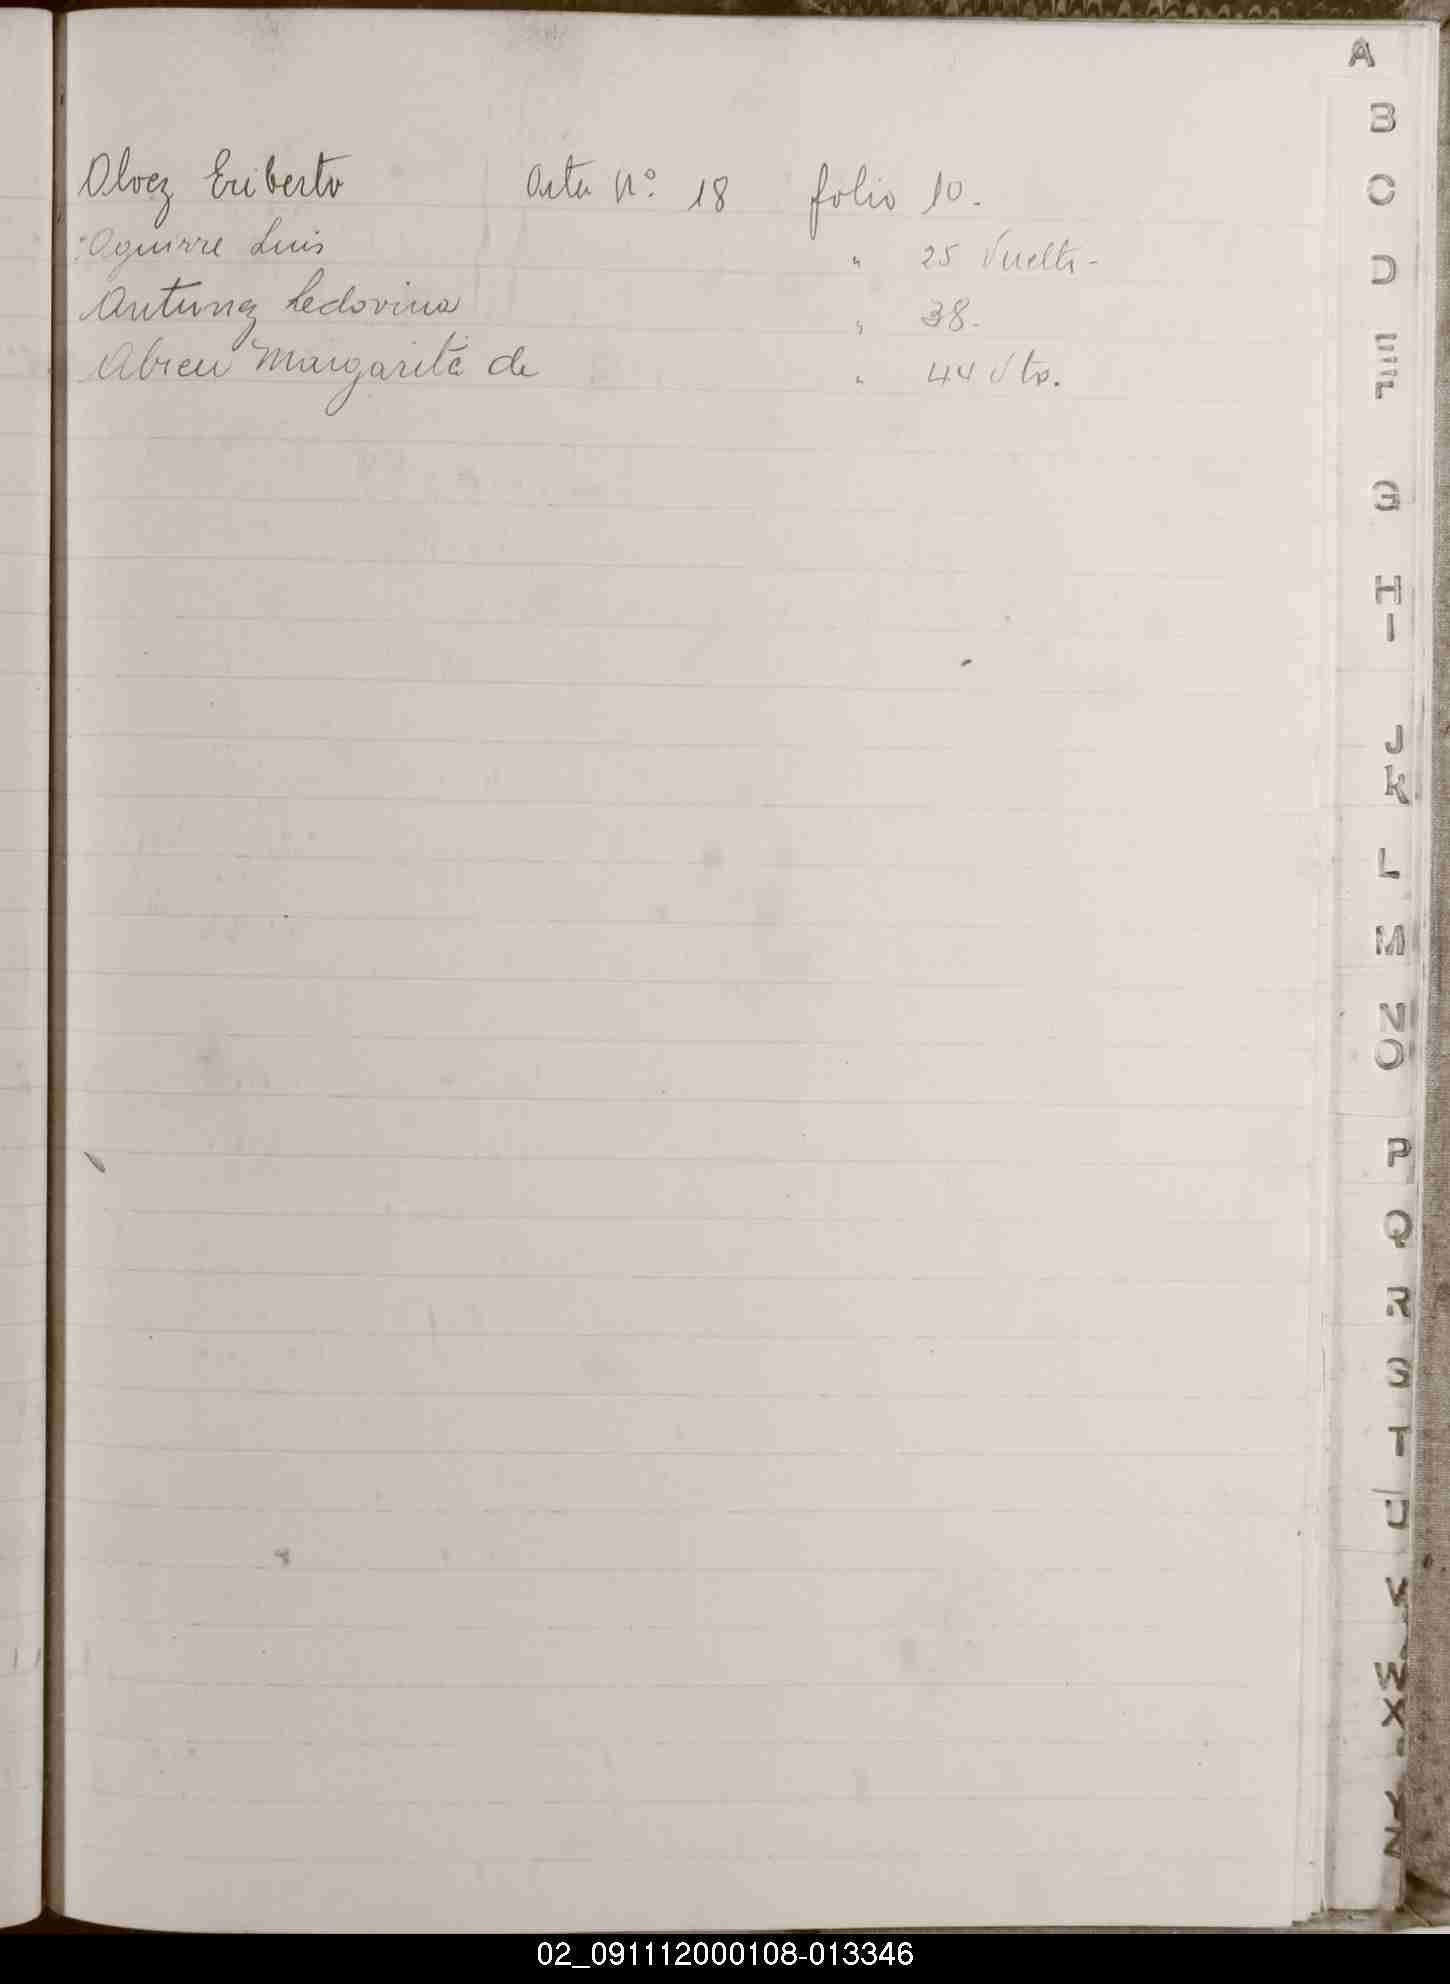 A
Alvez Eriberto Acta Nº 18 folio 10.
Aguirre Luis " 25 Vuelta-
Antunez Ledovina " 38.
Abreu Margarita de " 44 Vto.
B
C
D
E
F
G
H
I
J
K
L
M
N
O
P
Q
R
S
T
U
V
W
X
Y
Z
02_091112000108-013346